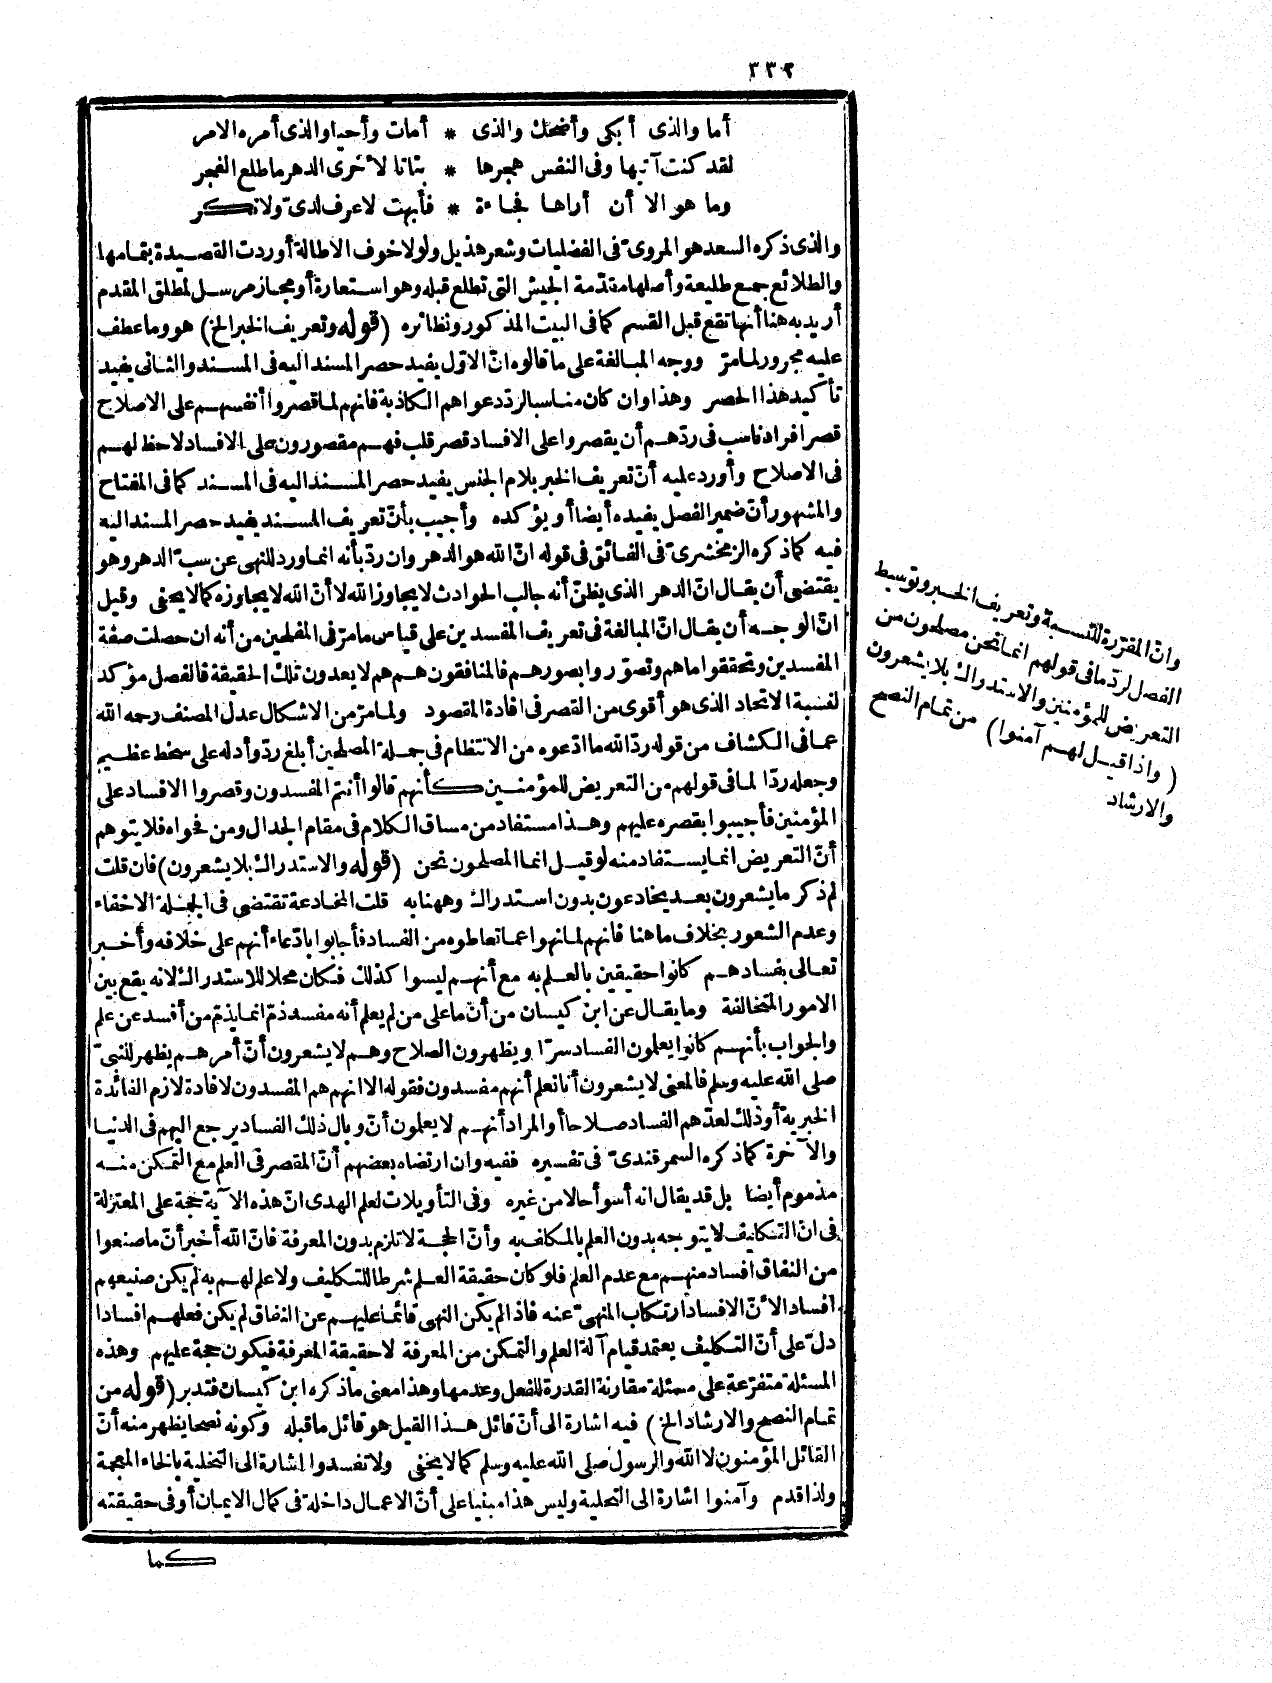 ٣٣٢
أما والذى أبكى وأضحك والذى * أمات وأحيا والذى أمره الامر
لقد كنت آتيها وفى النفس هجرها * بتاتا لأخرى الدهر ما طلع الفجر
وما هو الا أن أراها فجاءة * فأبهت لا عرف لدىّ ولا نكر
والذى ذكره السعد هو المروىّ فى الفضليات وشعر هذيل ولولا خوف الاطالة أوردت القصيدة بتمامها
والطلائع جمع طليعة وأصلها مقدّمة الجيش التى تطلع قبله وهو استعارة أو مجاز مرسل لمطلق المقدم
أريد به هنا أنها تقع قبل القسم كما فى البيت المذكور ونظائره (قوله وتعريف الخبر الخ) هو وما عطف
عليه مجرور لمامرّ ووجه المبالغة على ما قالوه انّ الاوّل يفيد حصر المسند اليه فى المسند والثانى يفيد
تأكيد هذا الحصر وهذا وان كان مناسبا لردّ دعواهم الكاذبة فانهم لما قصروا أنفسهم على الاصلاح
قصر افراد ناسب فى ردّهم أن يقصروا على الافساد قصر قلب فهم مقصورون على الافساد لاحظ لهم
فى الاصلاح وأورد عليه أنّ تعريف الخبر بلام الجنس يفيد حصر المسند اليه فى المسند كما فى المفتاح
والمشهور أنّ ضمير الفصل يفيده أيضا أو يؤكده وأجيب بأنّ تعريف المسند يفيد حصر المسند اليه
فيه كما ذكره الزمخشرىّ فى الفائق فى قوله انّ الله هو الدهر وان ردّ بأنه انما ورد للنهى عن سبّ الدهر وهو
يقتضى أن يقال انّ الدهر الذى يظنّ أنه جالب الحوادث لا يجاوز الله لا أنّ الله لا يجاوزه كما لا يخفى وقيل
انّ الوجه أن يقال انّ المبالغة فى تعريف المفسدين على قياس ما مرّ فى المفلحين من أنه ان حصلت صفة
المفسدين وتحققوا ما هم وتصوّروا بصورهم فالمنافقون هم هم لا يعدون تلك الحقيقة فالفصل مؤكد
لنسبة الاتحاد الذى هو أقوى من القصر فى افادة المقصود ولمامرّ من الاشكال عدل المصنف رحمه الله
عما فى الكشاف من قوله ردّ الله ما ادّعوه من الانتظام فى جملة المصلحين أبلغ ردّ وأدله على سخط عظيم
وجعله ردّا لما فى قولهم من التعريض للمؤمنين كأنهم قالوا أنتم المفسدون وقصروا الافساد على
المؤمنين فأجيبوا بقصره عليهم وهذا مستفاد من مساق الكلام فى مقام الجدال ومن فحواه فلا يتوهم
أنّ التعريض انما يستفاد منه لو قيل انما المصلحون نحن (قوله والاستدراك بلا يشعرون) فان قلت
لم ذكر ما يشعرون بعد يخادعون بدون استدراك وههنا به قلت المخادعة تقتضى فى الجملة الاخفاء
وعدم الشعور بخلاف ما هنا فانهم لما نهوا عما تعاطوه من الفساد فأجابوا بادّعاء أنهم على خلافه وأخبر
تعالى بفسادهم كانوا حقيقين بالعلم به مع أنهم ليسوا كذلك فكان محلا للاستدراك لانه يقع بين
الامور المتخالفة وما يقال عن ابن كيسان من أنّ ما على من لم يعلم أنه مفسد ذمّ انما يذمّ من أفسد عن علم
والجواب بأنهم كانوا يعلمون الفساد سرّا ويظهرون الصلاح وهم لا يشعرون أنّ أمرهم يظهر للنبىّ
صلى الله عليه وسلم فالمعنى لا يشعرون أنا نعلم أنهم مفسدون فقوله الا انهم هم المفسدون لافادة لازم الفائدة
الخبرية أو ذلك لعدّهم الفساد صلاحا أو المراد أنهم لا يعلمون أنّ وبال ذلك الفساد يرجع اليهم فى الدنيا
والآخرة كما ذكره السمرقندىّ فى تفسيره ففيه وان ارتضاه بعضهم أنّ المقصر فى العلم مع التمكن منه
مذموم أيضا بل قد يقال انه أسوأ حالا من غيره وفى التأويلات لعلم الهدى انّ هذه الآية حجة على المعتزلة
فى انّ التكليف لا يتوجه بدون العلم بالمكلف به وأنّ الحجة لا تلزم بدون المعرفة فانّ الله أخبر أنّ ما صنعوا
من النفاق افساد منهم مع عدم العلم فلو كان حقيقة العلم شرطا للتكليف ولا علم لهم به لم يكن صنيعهم
افسادا لأنّ الافساد ارتكاب المنهىّ عنه فاذا لم يكن النهى قائما عليهم عن النفاق لم يكن فعلهم افسادا
دلّ على أنّ التكليف يعتمد قيام آلة العلم والتمكن من المعرفة لا حقيقة المعرفة فيكون حجة عليهم وهذه
المسئلة متفرّعة على مسئلة مقارنة القدرة للفعل وعدمها وهذا معنى ما ذكره ابن كيسان فتدبر (قوله من
تمام النصح والارشاد الخ) فيه اشارة الى أنّ قائل هذا القيل هو قائل ما قبله وكونه نصحا يظهر منه أنّ
القائل المؤمنون لا الله والرسول صلى الله عليه وسلم كما لا يخفى ولا تفسدوا اشارة الى التخلية بالخاء المعجمة
ولذا قدم وآمنوا اشارة الى التحلية وليس هذا مبنيا على أنّ الاعمال داخلة فى كمال الايمان أو فى حقيقته
كما
وانّ المقرّرة للنسبة وتعريف الخبر وتوسيط
الفصل لردّ ما فى قولهم انما نحن مصلحون من
التعريض للمؤمنين والاستدراك بلا يشعرون
(واذا قيل لهم آمنوا) من تمام النصح
والارشاد